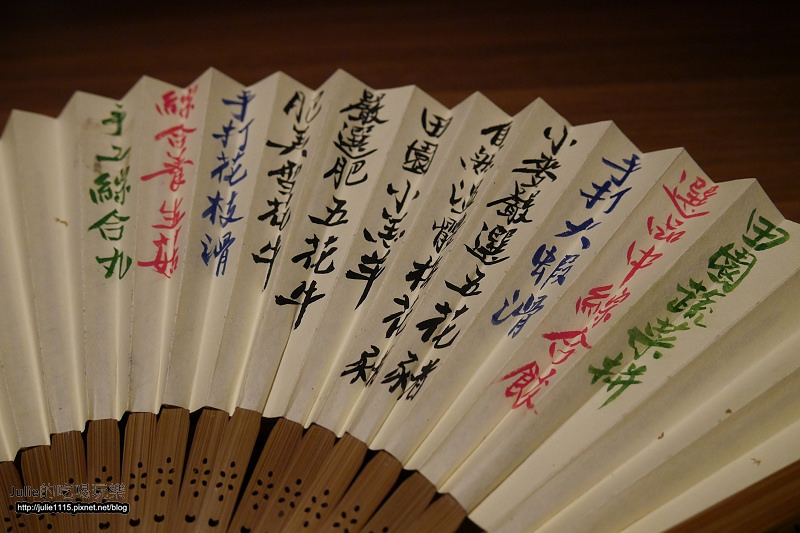 田園蔬菜拼
選中綜合餃
手打大蝦滑
小麥嚴選五花豬
花豬
田園小羔羊
嚴選肥五花牛
肥美雪花牛
手打花枝滑
綜合養生菇
手工綜合丸
Julie的吃喝玩樂
http://julie1115.pixnet.net/blog